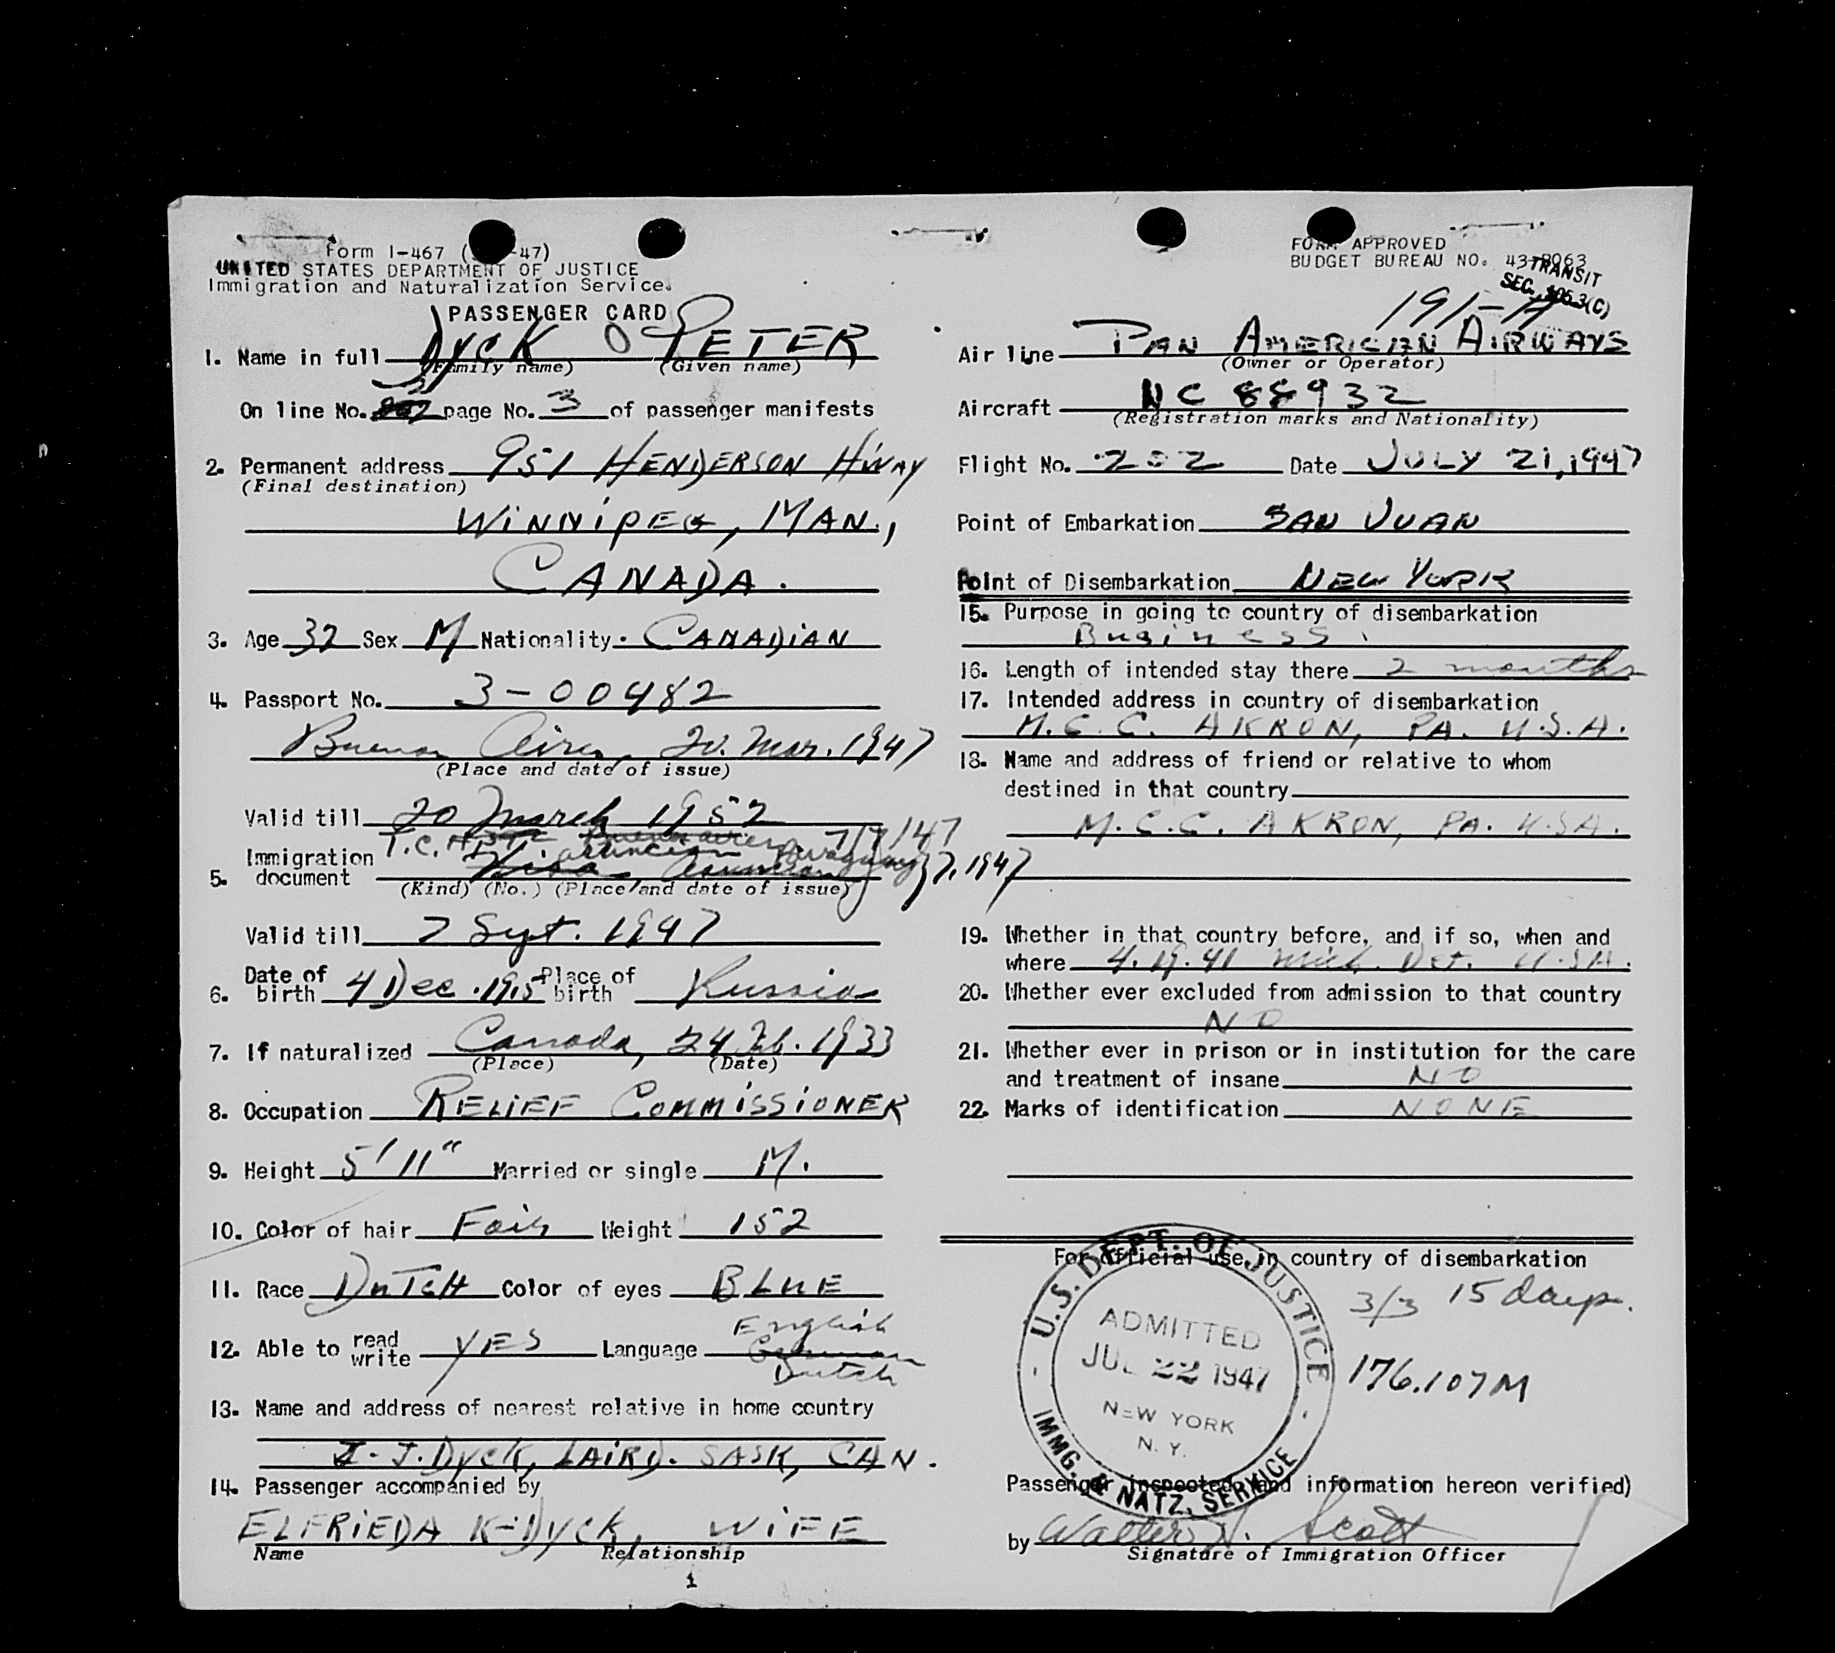 Form I-467 ( -47)
UNITED STATES DEPARTMENT OF JUSTICE
Immigration and Naturalization Service.
PASSENGER CARD
1. Name in full DYCK PETER
(Family name) (Given name)
On line No. page No. 3 of passenger manifests
2. Permanent address 951 HENDERSON H'WAY
(Final destination)
WINNIPEG, MAN.,
CANADA.
3. Age 32 Sex M Nationality CANADIAN
4. Passport No. 3-00482
Buenos Aires, 20. Mar. 1947
(Place and date of issue)
Valid till 20 March 1952
T.C. 7/7/147
Immigration
5. document Visa Asuncion 7, 1947
(Kind) (No.) (Place and date of issue)
Valid till 7 Sept. 1947
6. Date of birth 4 Dec. 1915 Place of birth Russia
7. If naturalized Canada, 24 Feb. 1933
(Place) (Date)
8. Occupation RELIEF COMMISSIONER
9. Height 5'11" Married or single M.
10. Color of hair Fair Weight 152
11. Race DUTCH Color of eyes BLUE
12. Able to read write YES Language English German Dutch
13. Name and address of nearest relative in home country
J. J. DYCK, LAIRD. SASK, CAN.
14. Passenger accompanied by
ELFRIEDA K-DYCK, WIFE
Name Relationship
1
FORM APPROVED
BUDGET BUREAU NO. 43-R063
TRANSIT
SEC. 105.3(C)
Air line PAN AMERICAN AIRWAYS
(Owner or Operator)
Aircraft NC 88932
(Registration marks and Nationality)
Flight No. 202 Date JULY 21, 1947
Point of Embarkation SAN JUAN
Point of Disembarkation NEW YORK
15. Purpose in going to country of disembarkation
Business
16. Length of intended stay there 2 months
17. Intended address in country of disembarkation
M.C.C. AKRON, PA. U.S.A.
18. Name and address of friend or relative to whom
destined in that country
M.C.C. AKRON, PA. U.S.A.
19. Whether in that country before, and if so, when and
where 4.19.41 Mich. Det. U.S.A.
20. Whether ever excluded from admission to that country
NO
21. Whether ever in prison or in institution for the care
and treatment of insane NO
22. Marks of identification NONE
For official use in country of disembarkation
3/3 15 days.
176.107M
U.S. DEPT. OF JUSTICE
ADMITTED
JUL 22 1947
NEW YORK
N. Y.
IMMG. & NATZ. SERVICE
Passenger inspected and information hereon verified)
by Walter N. Scott
Signature of Immigration Officer